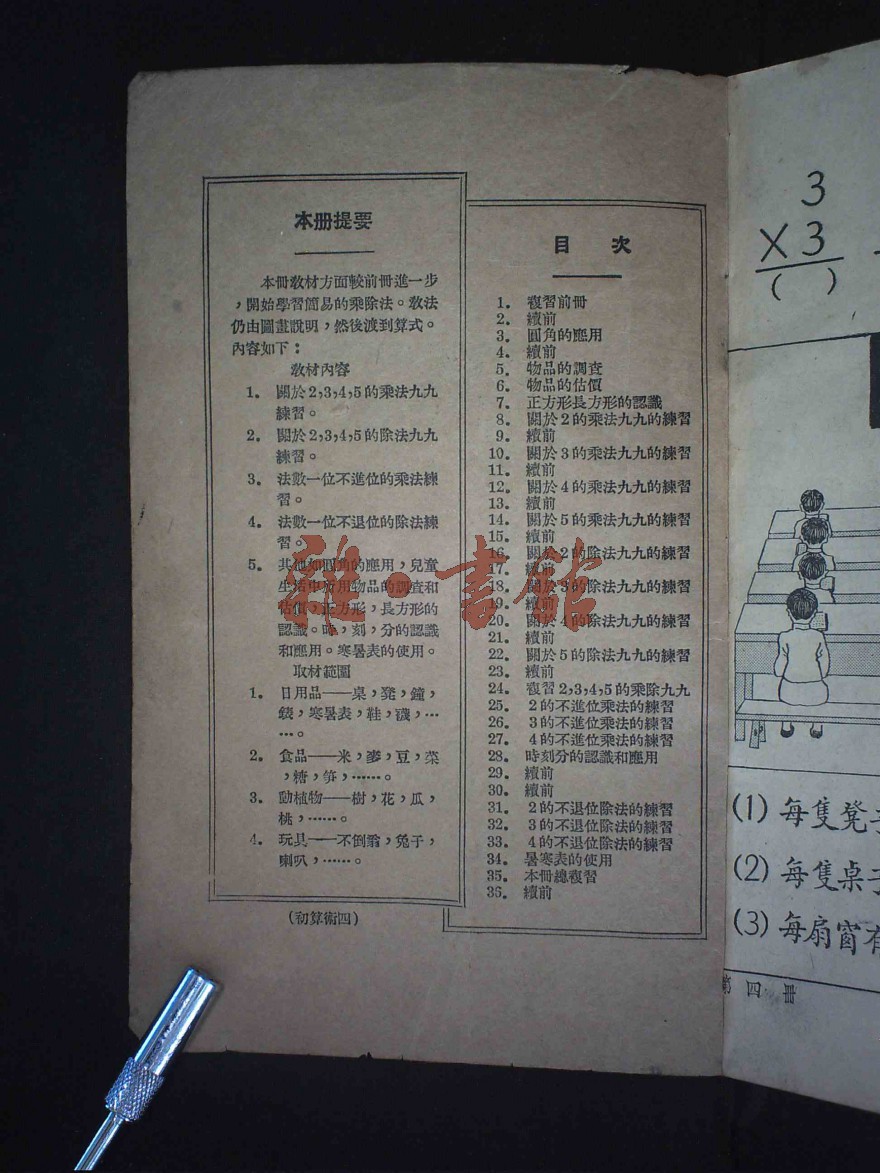 本册提要
本冊敎材方面較前冊進一步
,開始學習簡易的乘除法。敎法
仍由圖畫說明,然後渡到算式。
內容如下:
敎材內容
1. 關於2,3,4,5的乘法九九
練習。
2. 關於2,3,4,5的除法九九
練習。
3. 法數一位不進位的乘法練
習。
4. 法數一位不退位的除法練
習。
5. 其他如圓角的應用,兒童
生活中所用物品的調查和
估價,正方形,長方形的
認識。時,刻,分的認識
和應用。寒暑表的使用。
取材範圍
1. 日用品——桌,凳,鐘,
錶,寒暑表,鞋,襪,…
…。
2. 食品——米,麥,豆,菜
,糖,笋,……。
3. 動植物——樹,花,瓜,
桃,……。
4. 玩具——不倒翁,兔子,
喇叭,……。
(初算術四)
目 次
1. 複習前冊
2. 續前
3. 圓角的應用
4. 續前
5. 物品的調查
6. 物品的估價
7. 正方形長方形的認識
8. 關於2的乘法九九的練習
9. 續前
10. 關於3的乘法九九的練習
11. 續前
12. 關於4的乘法九九的練習
13. 續前
14. 關於5的乘法九九的練習
15. 續前
16. 關於2的除法九九的練習
17. 續前
18. 關於3的除法九九的練習
19. 續前
20. 關於4的除法九九的練習
21. 續前
22. 關於5的除法九九的練習
23. 續前
24. 複習2,3,4,5的乘除九九
25. 2的不進位乘法的練習
26. 3的不進位乘法的練習
27. 4的不進位乘法的練習
28. 時刻分的認識和應用
29. 續前
30. 續前
31. 2的不退位除法的練習
32. 3的不退位除法的練習
33. 4的不退位除法的練習
34. 暑寒表的使用
35. 本冊總複習
36. 續前
雜·書館
3
×3
( )
(1) 每隻凳子
(2) 每隻桌子
(3) 每扇窗有
第四冊